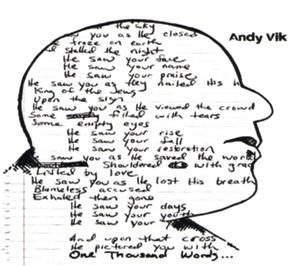 the sky
you as he closed
froze on earth
stalled the night
He saw your face
He saw your name
He saw your praise
He saw you as they nailed His h
King of the Jews
Upon the sign
He saw you as He viewed the crowd
Some filled with tears
Some empty eyes
He saw your rise
He saw your fall
He saw your restoration
saw you as He saved the world
Shouldered with grac
Lifted by love
He saw you as He lost His breath
Blameless accused
Exhaled then gone
He saw your days
He saw your youth
He saw your
And upon that cross
He pictured you with
One Thousand Words...
Andy Vik